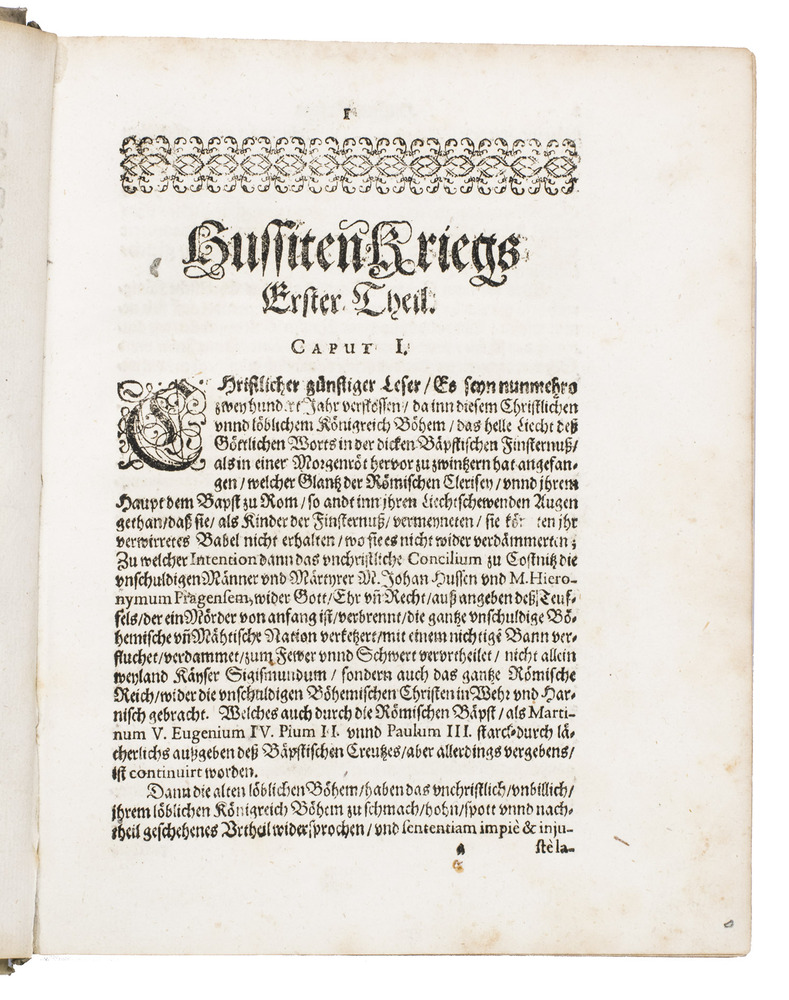 1
Hussiten Kriegs
Erster Theil.
CAPUT I.
CHristlicher günstiger Leser / Es seyn nunmehro
zwey hundert Jahr verflossen / da inn diesem Christlichen
vnnd löblichem Königreich Böhem / das helle Liecht deß
Göttlichen Worts in der dicken Bäpstischen Finsternuß /
als in einer Morgenröt hervor zu zwintzern hat angefan-
gen / welcher Glantz der Römischen Clerisey / vnnd jhrem
Haupt dem Bapst zu Rom / so andt inn jhren Liechtschewenden Augen
gethan / daß sie / als Kinder der Finsternuß / vermeyneten / sie jhr
verwirretes Babel nicht erhalten / wo sie es nicht wider verdämmerten ;
Zu welcher Intention dann das vnchristliche Concilium zu Costnitz die
vnschuldigen Männer vnd Märtyrer M. Johan Hussen vnd M. Hiero-
nymum Pragensem, wider Gott / Ehr vñ Recht / auß angeben deß Teuf-
fels / der ein Mörder von anfang ist / verbrennt / die gantze vnschuldige Bö-
hemische vñ Mähtische Nation verketzert / mit einem nichtigē Bann ver-
fluchet / verdammet / zum Fewer vnnd Schwert vervrtheilet / nicht allein
weyland Käyser Sigismundum / sondern auch das gantze Römische
Reich / wider die vnschuldigen Böhemischen Christen in Wehr vnd Har-
nisch gebracht. Welches auch durch die Römischen Bäpst / als Marti-
num V. Eugenium IV. Pium II. vnnd Paulum III. starck durch lä-
cherlichs außgeben deß Bäpstischen Creutzes / aber allerdings vergebens /
ist continuirt worden.
Dann die alten löblichen Böhem / haben das vnchristlich / vnbillich /
jhrem löblichen Königreich Böhem zu schmach / hohn / spott vnnd nach-
theil geschehenes Vrtheil widersprochen / vnd sententiam impiè & inju-
stè la-